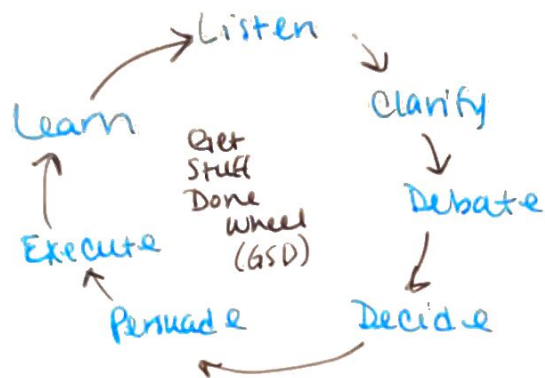 Listen
Clarify
Debate
Decide
Persuade
Execute
Learn
Get
Stuff
Done
Wheel
(GSD)